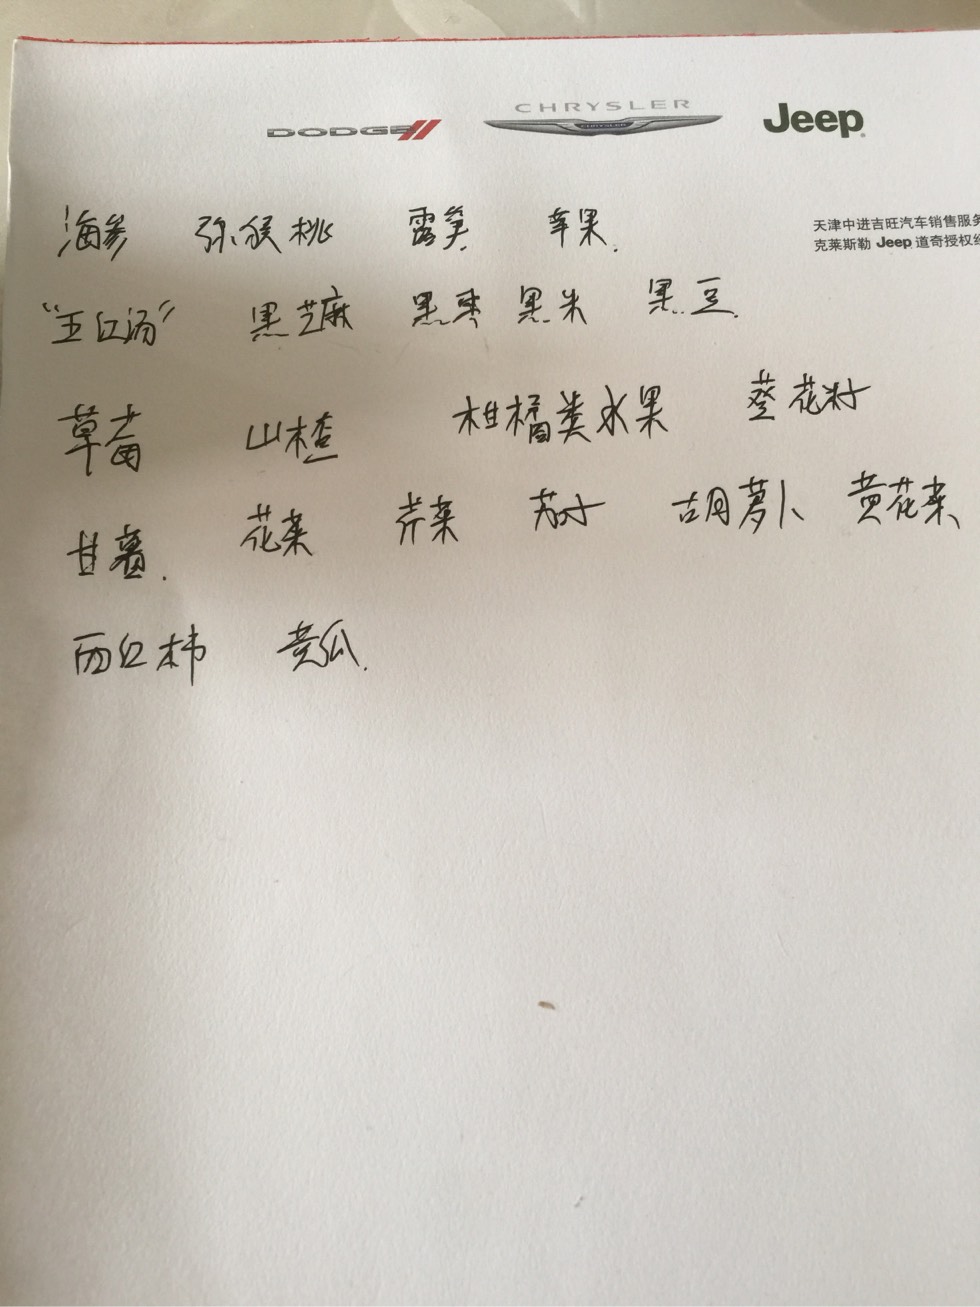 CHRYSLER
DODGE CHRYSLER Jeep
天津中进吉旺汽车销售服务
克莱斯勒 Jeep 道奇授权经
海参 弥猴桃 露笋 苹果.
“五红汤” 黑芝麻 黑枣 黑米 黑豆.
草莓 山楂 柑橘类水果 葵花籽
甘蓝. 花菜 芹菜 胡萝卜 黄花菜
西红柿 黄瓜.